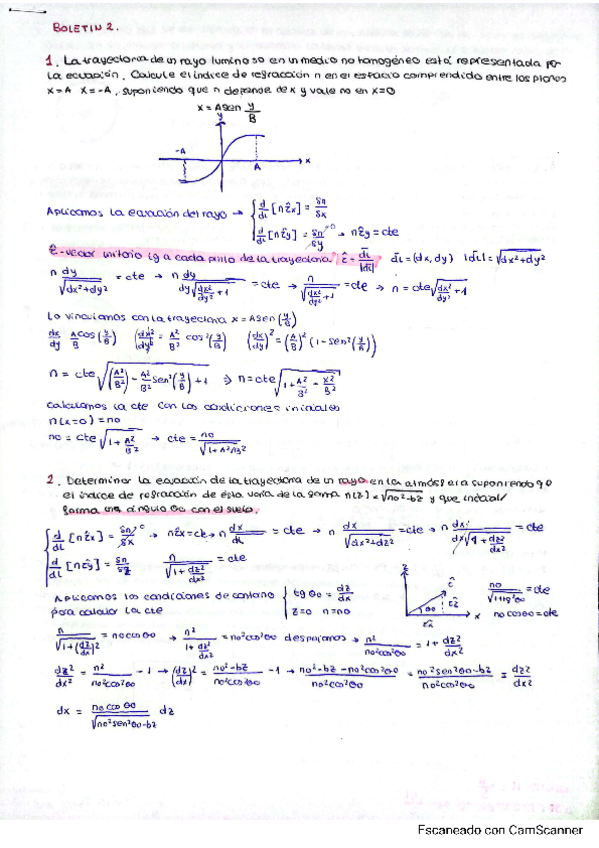 BOLETIN 2.
1. La trayectoria de un rayo luminoso en un medio no homogéneo está representada por
la ecuación. Calcule el índice de refracción n en el espacio comprendido entre los planos
x=A x=-A, suponiendo que n depende de x y vale no en x=0
x = A sen y/B
y
-A
A
x
Aplicamos la ecuación del rayo → { d/dl [n t̂x] = δn/δx
d/dl [n t̂y] = δn/δy → n t̂y = cte
t̂ - vector unitario tg a cada punto de la trayectoria. t̂ = dl/|dl| dl = (dx, dy) |dl| = √dx²+dy²
n dy/√dx²+dy² = cte → n dy/dy√dx²/dy²+1 = cte → n/√dx²/dy²+1 = cte → n = cte√dx²/dy²+1
Lo vinculamos con la trayectoria x = A sen(y/B)
dx/dy A/B cos(y/B) (dx/dy)² = A²/B² cos²(y/B) (dx/dy)² = (A/B)² (1-sen²(y/B))
n = cte√(A²/B²) - A²/B² sen²(y/B) + 1 ⇒ n = cte√1 + A²/B² - x²/B²
Calculamos la cte con las condiciones iniciales
n(x=0) = no
no = cte√1 + A²/B² → cte = no/√1+A²/B²
2. Determinar la ecuación de la trayectoria de un rayo en la atmósfera suponiendo q
el índice de refracción de ésta varía de la forma n(z) = √no²-bz y que incidal
forma un ángulo θo con el suelo.
{ d/dl [n t̂x] = δn/δx 0 → n t̂x = cte → n dx/dl = cte → n dx/√dx²+dz² = cte → n dx/dx√1+dz²/dx² = cte
d/dl [n t̂y] = δn/δz n/√1+dz²/dx² = cte
Aplicamos las condiciones de contorno { tg θo = dz/dx
para calcular la cte z=0 n=no
z
t̂
t̂z
θo
t̂x
x
no/√1+tg²θo = cte
no cos θo = cte
n/√1+(dz/dx)² = no cos θo → n²/1+dz²/dx² = no² cos² θo despejamos → n²/no² cos² θo = 1 + dz²/dx²
dz²/dx² = n²/no² cos² θo - 1 → (dz/dx)² = no²-bz/no² cos² θo - 1 → no²-bz-no² cos² θo/no² cos² θo = no² sen² θo - bz/no² cos² θo = dz²/dx²
dx = no cos θo/√no² sen² θo - bz dz
Escaneado con CamScanner